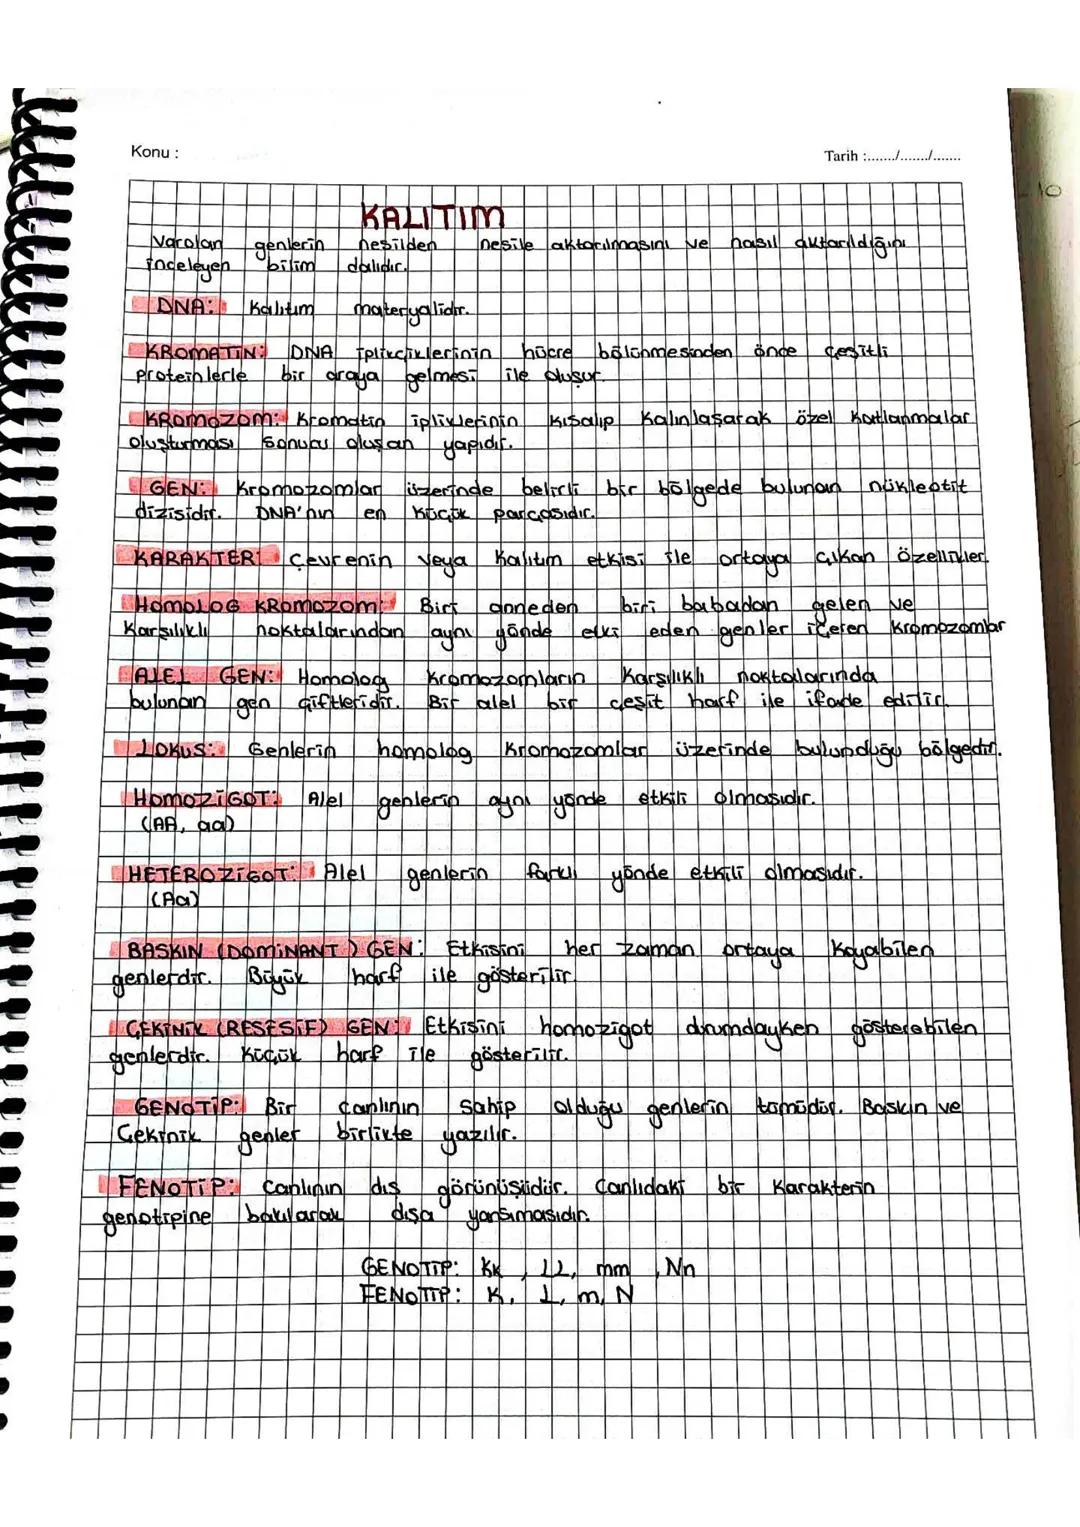 Konu :
Tarih :......./......./.......
10
KALITIM
Varolan genlerin nesilden nesile aktarılmasını ve nasıl aktarıldığını
inceleyen bilim dalıdır.
DNA: Kalıtım materyalidir.
KROMATİN: DNA iplikçiklerinin hücre bölünmesinden önce çeşitli
proteinlerle bir araya gelmesi ile oluşur.
KROMOZOM: Kromatin ipliklerinin kısalıp kalınlaşarak özel katlanmalar
oluşturması sonucu oluşan yapıdır.
GEN: Kromozomlar üzerinde belirli bir bölgede bulunan nükleotit
dizisidir. DNA'nın en küçük parçasıdır.
KARAKTER: Çevrenin veya kalıtım etkisi ile ortaya çıkan özellikler.
HOMOLOG KROMOZOM: Biri anneden biri babadan gelen ve
karşılıklı noktalarından aynı yönde etki eden genler içeren kromozomlar
ALEL GEN: Homolog kromozomların karşılıklı noktalarında
bulunan gen çiftleridir. Bir alel bir çeşit harf ile ifade edilir.
LOKUS: Genlerin homolog kromozomlar üzerinde bulunduğu bölgedir.
HOMOZİGOT: Alel genlerin aynı yönde etkili olmasıdır.
(AA, aa)
HETEROZİGOT: Alel genlerin farklı yönde etkili olmasıdır.
(Aa)
BASKIN (DOMİNANT) GEN: Etkisini her zaman ortaya koyabilen
genlerdir. Büyük harf ile gösterilir.
ÇEKİNİK (RESESİF) GEN: Etkisini homozigot durumdayken gösterebilen
genlerdir. Küçük harf ile gösterilir.
GENOTİP: Bir canlının sahip olduğu genlerin tümüdür. Baskın ve
Çekinik genler birlikte yazılır.
FENOTİP: Canlının dış görünüşüdür. Canlıdaki bir karakterin
genotipine bakılarak dışa yansımasıdır.
GENOTİP: Kk , LL, mm , Nn
FENOTİP: K, L, m, N